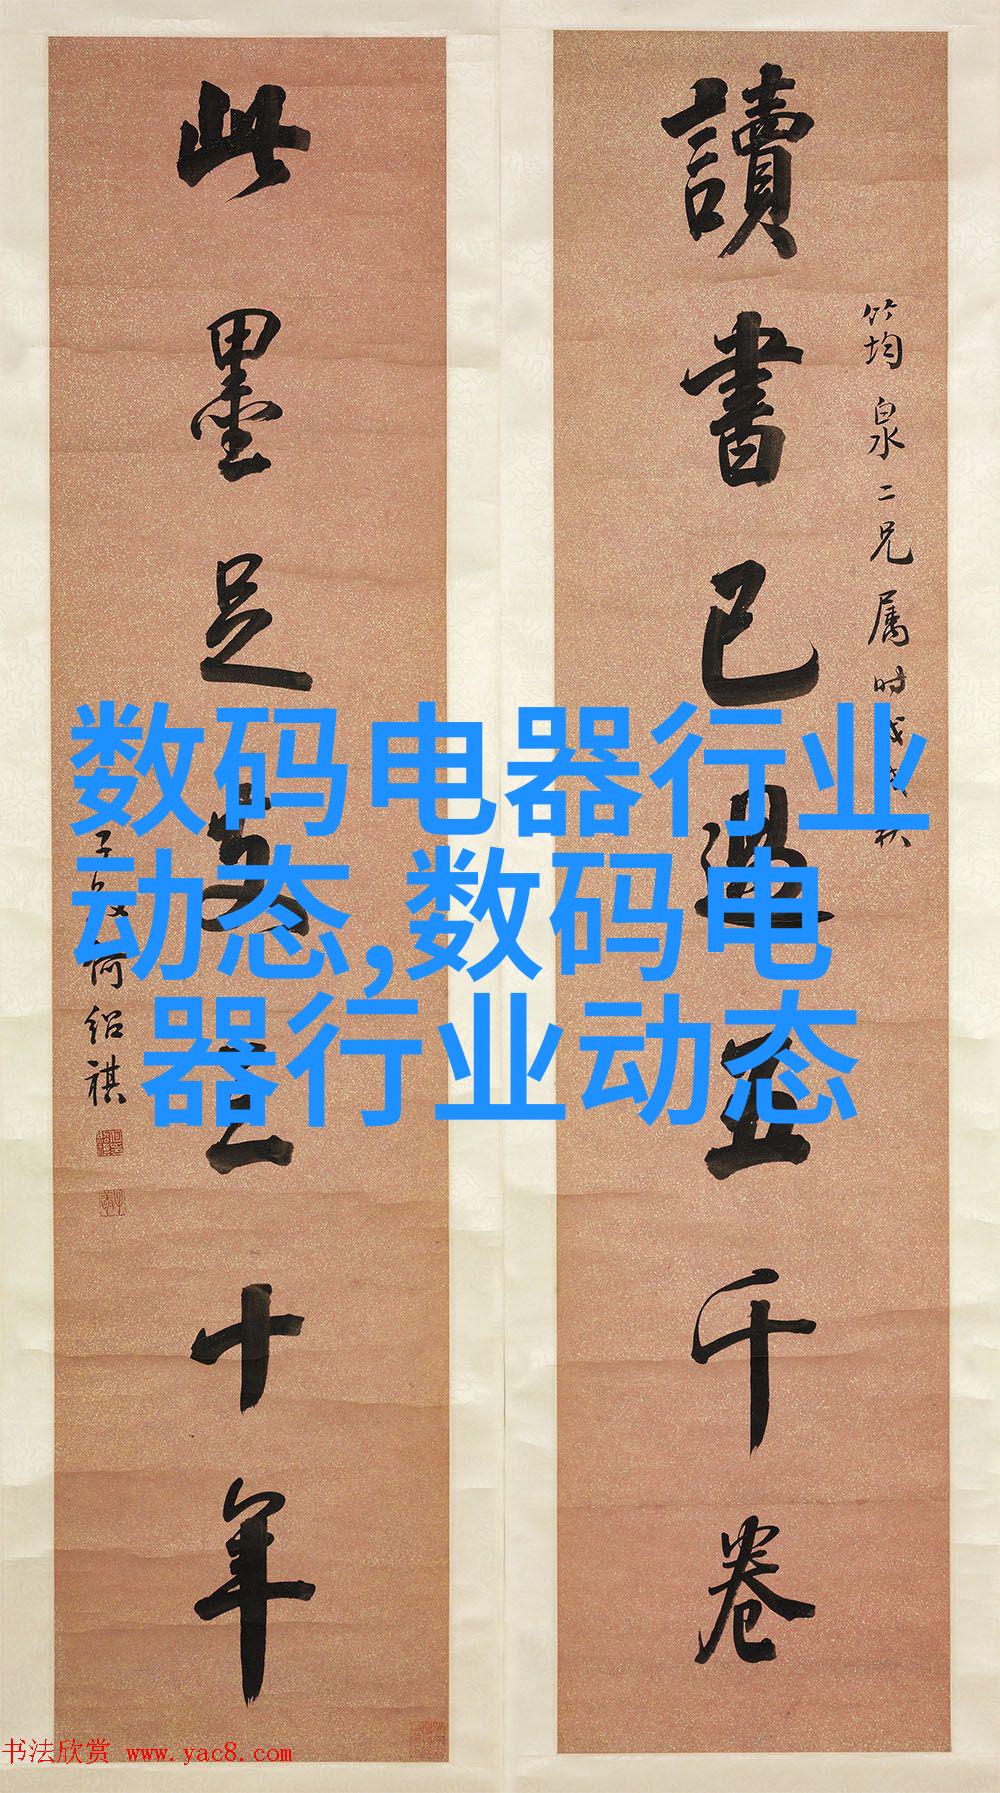 筠泉二兄属时戊戌秋
讀書已過五千卷
此墨足支三十年
子毅何绍祺
数码电器行业
动态,数码电
器行业动态
书法欣赏 www.yac8.com